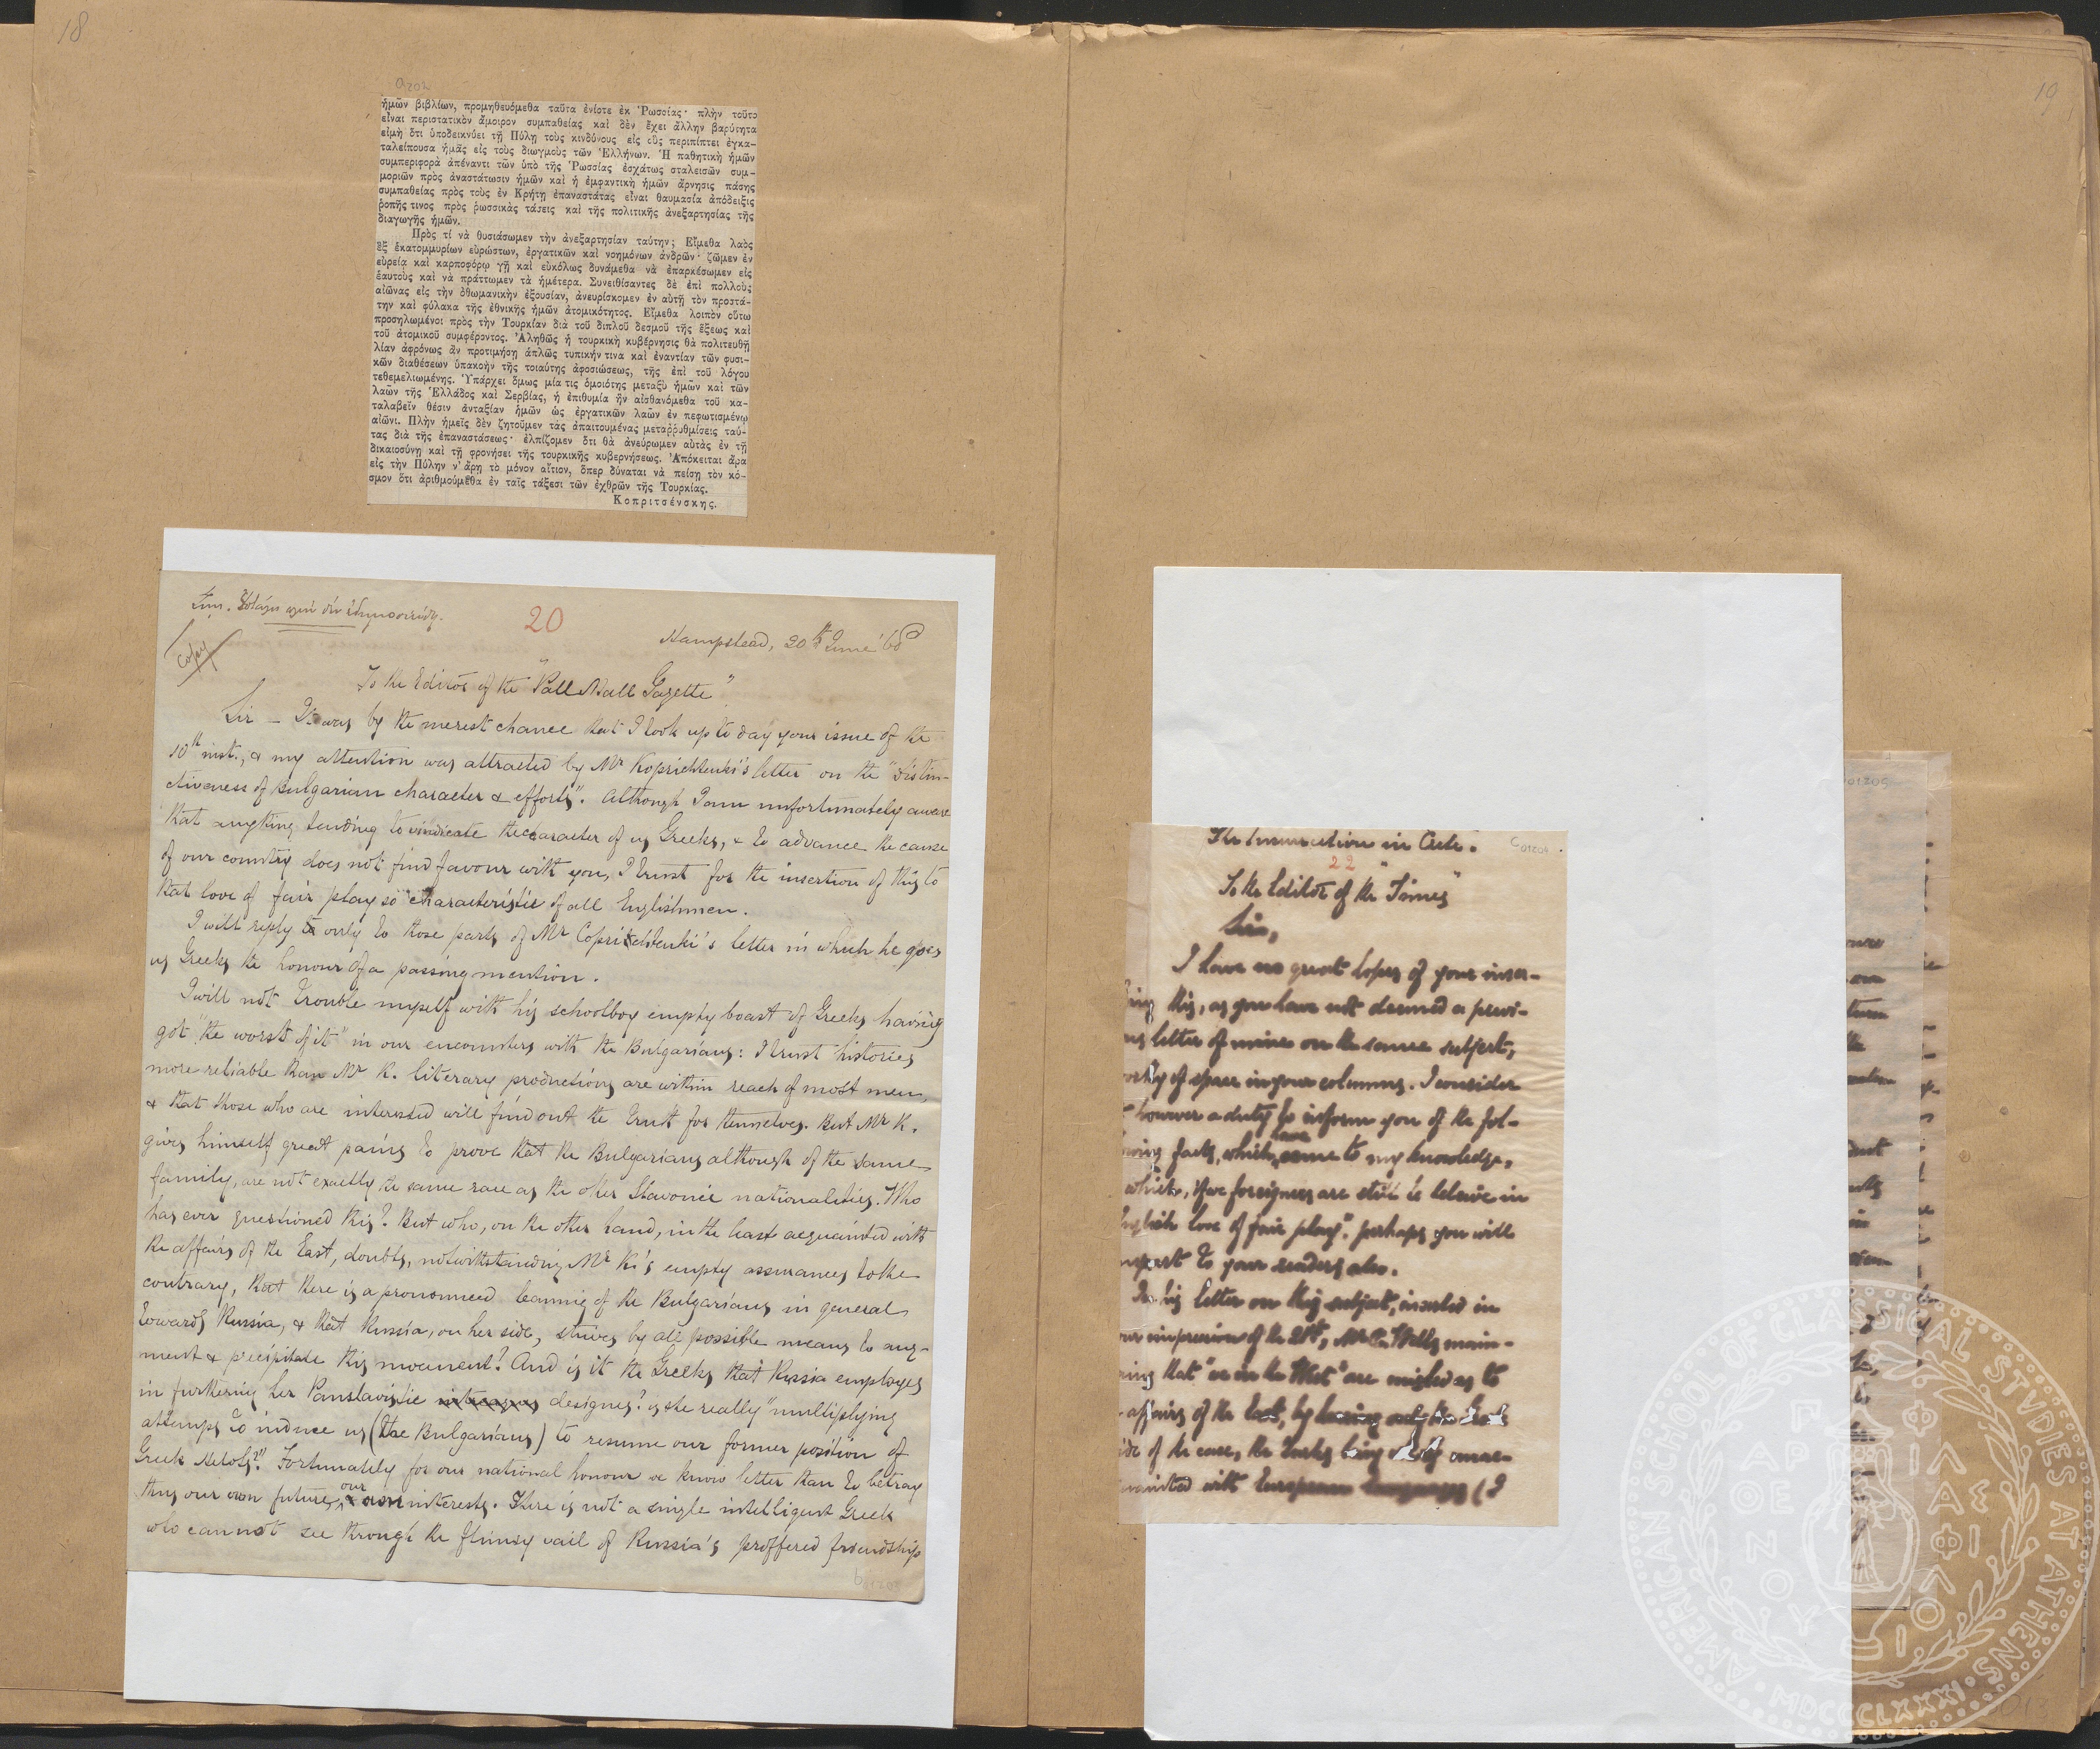 18
ἡμῶν βιβλίων, προμηθευόμεθα ταῦτα ἐνίοτε ἐκ Ῥωσσίας· πλὴν τοῦτο
εἶναι περιστατικὸν ἄμοιρον συμπαθείας καὶ δὲν ἔχει ἄλλην βαρύτητα
εἰμὴ ὅτι ὑποδεικνύει τῇ Πύλῃ τοὺς κινδύνους εἰς οὓς περιπίπτει ἐγκα-
ταλείπουσα ἡμᾶς εἰς τοὺς διωγμοὺς τῶν Ἑλλήνων. Ἡ παθητικὴ ἡμῶν
συμπεριφορὰ ἀπέναντι τῶν ὑπὸ τῆς Ῥωσσίας ἐσχάτως σταλεισῶν συμ-
μοριῶν πρὸς ἀναστάτωσιν ἡμῶν καὶ ἡ ἐμφαντικὴ ἡμῶν ἄρνησις πάσης
συμπαθείας πρὸς τοὺς ἐν Κρήτῃ ἐπαναστάτας εἶναι θαυμασία ἀπόδειξις
ῥοπῆς τινος πρὸς ῥωσσικὰς τάσεις καὶ τῆς πολιτικῆς ἀνεξαρτησίας τῆς
διαγωγῆς ἡμῶν.
Πρὸς τί νὰ θυσιάσωμεν τὴν ἀνεξαρτησίαν ταύτην; Εἴμεθα λαὸς
ἓξ ἑκατομμυρίων εὐρώστων, ἐργατικῶν καὶ νοημόνων ἀνδρῶν· ζῶμεν ἐν
εὐρείᾳ καὶ καρποφόρῳ γῇ καὶ εὐκόλως δυνάμεθα νὰ ἐπαρκέσωμεν εἰς
ἑαυτοὺς καὶ νὰ πράττωμεν τὰ ἡμέτερα. Συνειθίσαντες δὲ ἐπὶ πολλοὺς
αἰῶνας εἰς τὴν ὀθωμανικὴν ἐξουσίαν, ἀνευρίσκομεν ἐν αὐτῇ τὸν προστά-
την καὶ φύλακα τῆς ἐθνικῆς ἡμῶν ἀτομικότητος. Εἴμεθα λοιπὸν οὕτω
προσηλωμένοι πρὸς τὴν Τουρκίαν διὰ τοῦ διπλοῦ δεσμοῦ τῆς ἕξεως καὶ
τοῦ ἀτομικοῦ συμφέροντος. Ἀληθῶς ἡ τουρκικὴ κυβέρνησις θὰ πολιτευθῇ
λίαν ἀφρόνως ἂν προτιμήσῃ ἁπλῶς τυπικήν τινα καὶ ἐναντίαν τῶν φυσι-
κῶν διαθέσεων ὑπακοὴν τῆς τοιαύτης ἀφοσιώσεως, τῆς ἐπὶ τοῦ λόγου
τεθεμελιωμένης. Ὑπάρχει ὅμως μία τις ὁμοιότης μεταξὺ ἡμῶν καὶ τῶν
λαῶν τῆς Ἑλλάδος καὶ Σερβίας, ἡ ἐπιθυμία ἣν αἰσθανόμεθα τοῦ κα-
ταλαβεῖν θέσιν ἀνταξίαν ἡμῶν ὡς ἐργατικῶν λαῶν ἐν πεφωτισμένῳ
αἰῶνι. Πλὴν ἡμεῖς δὲν ζητοῦμεν τὰς ἀπαιτουμένας μεταῤῥυθμίσεις ταύ-
τας διὰ τῆς ἐπαναστάσεως· ἐλπίζομεν ὅτι θὰ ἀνεύρωμεν αὐτὰς ἐν τῇ
δικαιοσύνῃ καὶ τῇ φρονήσει τῆς τουρκικῆς κυβερνήσεως. Ἀπόκειται ἄρα
εἰς τὴν Πύλην ν' ἄρῃ τὸ μόνον αἴτιον, ὅπερ δύναται νὰ πείσῃ τὸν κό-
σμον ὅτι ἀριθμούμεθα ἐν ταῖς τάξεσι τῶν ἐχθρῶν τῆς Τουρκίας.
Κοπριτσένσκης.
20
Hampstead, 20th June '68
Copy
To the Editor of the "Pall Mall Gazette"
Sir – It was by the merest chance that I took up to day your issue of the
10th inst., & my attention was attracted by Mr Koprichtenki's letter on the "distin-
ctiveness of Bulgarian character & efforts". Although I am unfortunately aware
that anything tending to vindicate the caracter of us Greeks, & to advance the cause
of our country does not find favour with you, I trust for the insertion of this to
that love of fair play so characteristic of all Englishmen.
I will reply to only to those parts of Mr Coprichtenki's letter in which he does
us Greeks the honour of a passing mention.
I will not trouble myself with his schoolboy empty boast of Greeks having
got "the worst of it" in our encounters with the Bulgarians: I trust histories
more reliable than Mr K. literary productions are within reach of most men,
& that those who are interested will find out the truth for themselves. But Mr K.
gives himself great pains to prove that the Bulgarians although of the same
family, are not exactly the same race as the other Slavonic nationalities. Who
has ever questioned this? But who, on the other hand, in the least acquainted with
the affairs of the East, doubts, notwithstanding Mr K's empty assurances to the
contrary, that there is a pronounced leaning of the Bulgarians in general
towards Russia, & that Russia, on her side, strives by all possible means to aug-
ment & precipitate this movement? And is it the Greeks that Russia employs
in furthering her Panslavistic designes? is she really "multiplying
attemps to induce us (the Bulgarians) to resume our former position of
Greek Helots?" Fortunately for our national honour we know better than to betray
thus our own future, & our own interests. There is not a single intelligent Greek
who cannot see through the flimsy vail of Russia's proffered friendship
19
The Insurrection in Crete.
22
To the Editor of the "Times"
Sir,
I have no great hopes of your inser-
ting this, as you have not deemed a previ-
us letter of mine on the same subject,
orthy of space in your columns. I consider
however a duty to inform you of the fol-
owing facts, which have come to my knowledge,
which, if we foreigners are still to believe in
nglish love of fair play", perhaps you will
mpart to your readers also.
In his letter on this subject, inserted in
our impression of the 21st, Mr Wells main-
ains that "we in the West" are misled as to
affairs of the East, by hearing only the
ide of the case, the Turks being wholly unac-
quainted with European languages (I
AMERICAN SCHOOL OF CLASSICAL STUDIES AT ATHENS
MDCCCLXXXI